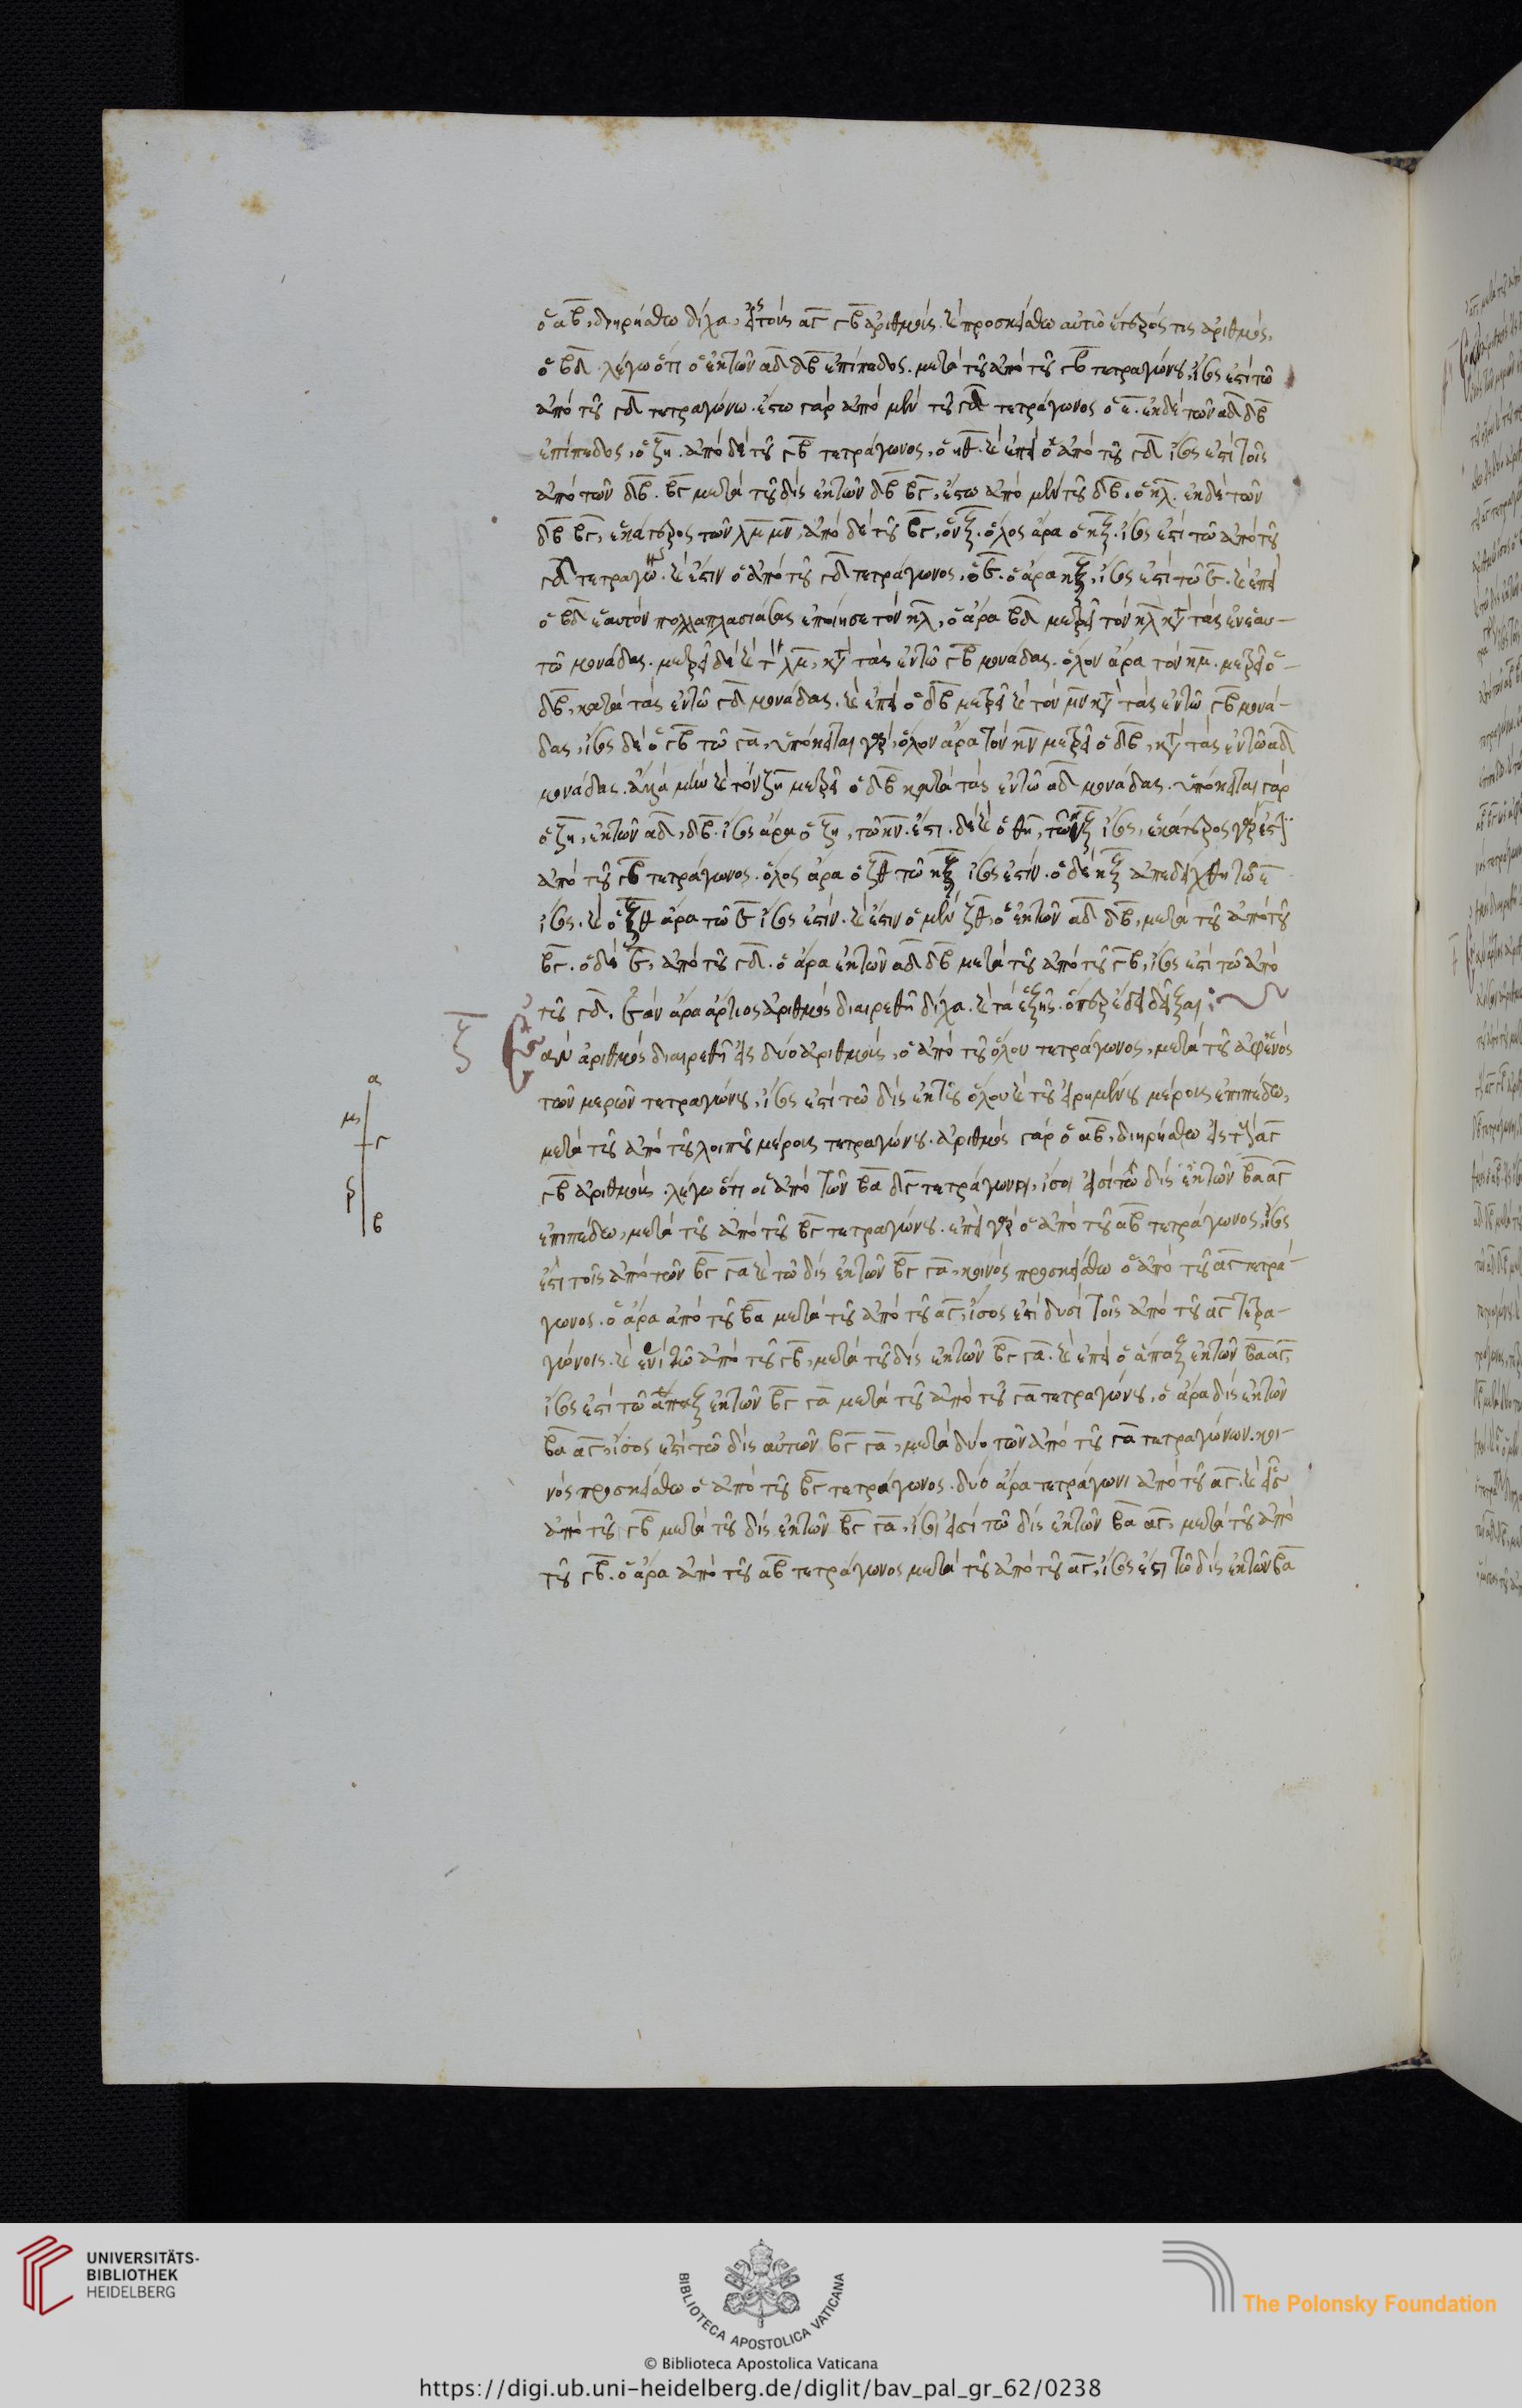 ὁ αβ, διηρήσθω δίχα, εἰς τοὺς αγ γβ ἀριθμούς. καὶ προσκείσθω αὐτῷ ἕτερός τις ἀριθμός,
ὁ βδ. λέγω ὅτι ὁ ἐκ τῶν αδ δβ ἐπίπεδος. μετὰ τοῦ ἀπὸ τοῦ γβ τετραγώνου, ἴσος ἐστὶ τῷ
ἀπὸ τοῦ γδ τετραγώνῳ. ἔστω γὰρ ἀπὸ μὲν τοῦ γδ τετράγωνος ὁ ε. ἐκ δὲ τῶν αδ δβ
ἐπίπεδος, ὁ ζη. ἀπὸ δὲ τοῦ γβ τετράγωνος, ὁ ηθ. καὶ ἐπεὶ ὁ ἀπὸ τοῦ γδ ἴσος ἐστὶ τοῖς
ἀπὸ τῶν δβ. βγ μετὰ τοῦ δὶς ἐκ τῶν δβ βγ, ἔστω ἀπὸ μὲν τοῦ δβ, ὁ κλ. ἐκ δὲ τῶν
δβ βγ, ἑκάτερος τῶν λμ μν, ἀπὸ δὲ τοῦ βγ, ὁ νξ. ὅλος ἄρα ὁ κξ. ἴσος ἐστὶ τῷ ἀπὸ τοῦ
γδ τετραγώνῳ. καὶ ἔστιν ὁ ἀπὸ τοῦ γδ τετράγωνος, ὁ ε. ὁ ἄρα κξ, ἴσος ἐστὶ τῷ ε. καὶ ἐπεὶ
ὁ βδ ἑαυτὸν πολλαπλασιάσας ἐποίησε τὸν κλ, ὁ ἄρα βδ μετρεῖ τὸν κλ κατὰ τὰς ἐν ἑαυ-
τῷ μονάδας. μετρεῖ δὲ καὶ τὸν λμ, κατὰ τὰς ἐν τῷ γβ μονάδας. ὅλον ἄρα τὸν κμ. μετρεῖ ὁ
δβ, κατὰ τὰς ἐν τῷ γδ μονάδας. καὶ ἐπεὶ ὁ δβ μετρεῖ καὶ τὸν μν κατὰ τὰς ἐν τῷ γβ μονά-
δας, ἴσος δὲ ὁ γβ τῷ γα, ὑπόκειται γάρ, ὅλον ἄρα τὸν κν μετρεῖ ὁ δβ, κατὰ τὰς ἐν τῷ αδ
μονάδας. ἀλλὰ μὴν καὶ τὸν ζη μετρεῖ ὁ δβ κατὰ τὰς ἐν τῷ αδ μονάδας. ὑπόκειται γὰρ
ὁ ζη, ἐκ τῶν αδ, δβ. ἴσος ἄρα ὁ ζη, τῷ κν. ἔστι. δὲ καὶ ὁ θη, τῷ νξ ἴσος, ἑκάτερος γάρ ἐστιν
ἀπὸ τοῦ γβ τετράγωνος. ὅλος ἄρα ὁ ζθ τῷ κξ ἴσος ἐστίν. ὁ δὲ κξ ἀπεδείχθη τῷ ε
ἴσος. καὶ ὁ ζθ ἄρα τῷ ε ἴσος ἐστίν. καὶ ἔστιν ὁ μὲν ζθ, ὁ ἐκ τῶν αδ δβ, μετὰ τοῦ ἀπὸ τοῦ
βγ. ὁ δὲ ε, ἀπὸ τοῦ γδ. ὁ ἄρα ἐκ τῶν αδ δβ μετὰ τοῦ ἀπὸ τοῦ γβ, ἴσος ἐστὶ τῷ ἀπὸ
τοῦ γδ. ἐὰν ἄρα ἄρτιος ἀριθμὸς διαιρεθῇ δίχα. καὶ τὰ ἑξῆς. ὅπερ ἔδει δεῖξαι:
ζ ἐὰν ἀριθμὸς διαιρεθῇ εἰς δύο ἀριθμούς, ὁ ἀπὸ τοῦ ὅλου τετράγωνος, μετὰ τοῦ ἀφ' ἑνὸς
τῶν μερῶν τετραγώνου, ἴσος ἐστὶ τῷ δὶς ἐκ τοῦ ὅλου καὶ τοῦ εἰρημένου μέρους ἐπιπέδῳ,
μετὰ τοῦ ἀπὸ τοῦ λοιποῦ μέρους τετραγώνου. ἀριθμὸς γὰρ ὁ αβ, διηρήσθω εἰς τοὺς αγ
γβ ἀριθμούς. λέγω ὅτι οἱ ἀπὸ τῶν βα αγ τετράγωνοι, ἴσοι εἰσὶ τῷ δὶς ἐκ τῶν βα αγ
ἐπιπέδῳ, μετὰ τοῦ ἀπὸ τοῦ βγ τετραγώνου. ἐπεὶ γὰρ ὁ ἀπὸ τοῦ αβ τετράγωνος, ἴσος
ἐστὶ τοῖς ἀπὸ τῶν βγ γα καὶ τῷ δὶς ἐκ τῶν βγ γα, κοινὸς προσκείσθω ὁ ἀπὸ τοῦ αγ τετρά-
γωνος. ὁ ἄρα ἀπὸ τοῦ βα μετὰ τοῦ ἀπὸ τοῦ αγ, ἴσος ἐστὶ δυσὶ τοῖς ἀπὸ τοῦ αγ τετρα-
γώνοις. καὶ ἑνὶ τῷ ἀπὸ τοῦ γβ, μετὰ τοῦ δὶς ἐκ τῶν βγ γα. καὶ ἐπεὶ ὁ ἅπαξ ἐκ τῶν βα αγ,
ἴσος ἐστὶ τῷ ἅπαξ ἐκ τῶν βγ γα μετὰ τοῦ ἀπὸ τοῦ γα τετραγώνου, ὁ ἄρα δὶς ἐκ τῶν
βα αγ, ἴσος ἐστὶ τῷ δὶς αὐτῶν βγ γα, μετὰ δύο τῶν ἀπὸ τοῦ γα τετραγώνων. κοι-
νὸς προσκείσθω ὁ ἀπὸ τοῦ βγ τετράγωνος. δύο ἄρα τετράγωνοι ἀπὸ τοῦ αγ. καὶ εἷς
ἀπὸ τοῦ γβ μετὰ τοῦ δὶς ἐκ τῶν βγ γα, ἴσοι εἰσὶ τῷ δὶς ἐκ τῶν βα αγ, μετὰ τοῦ ἀπὸ
τοῦ γβ. ὁ ἄρα ἀπὸ τοῦ αβ τετράγωνος μετὰ τοῦ ἀπὸ τοῦ αγ, ἴσος ἐστὶ τῷ δὶς ἐκ τῶν βα
α
γ
β
UNIVERSITÄTS-
BIBLIOTHEK
HEIDELBERG
BIBLIOTECA APOSTOLICA VATICANA
© Biblioteca Apostolica Vaticana
The Polonsky Foundation
https://digi.ub.uni-heidelberg.de/diglit/bav_pal_gr_62/0238